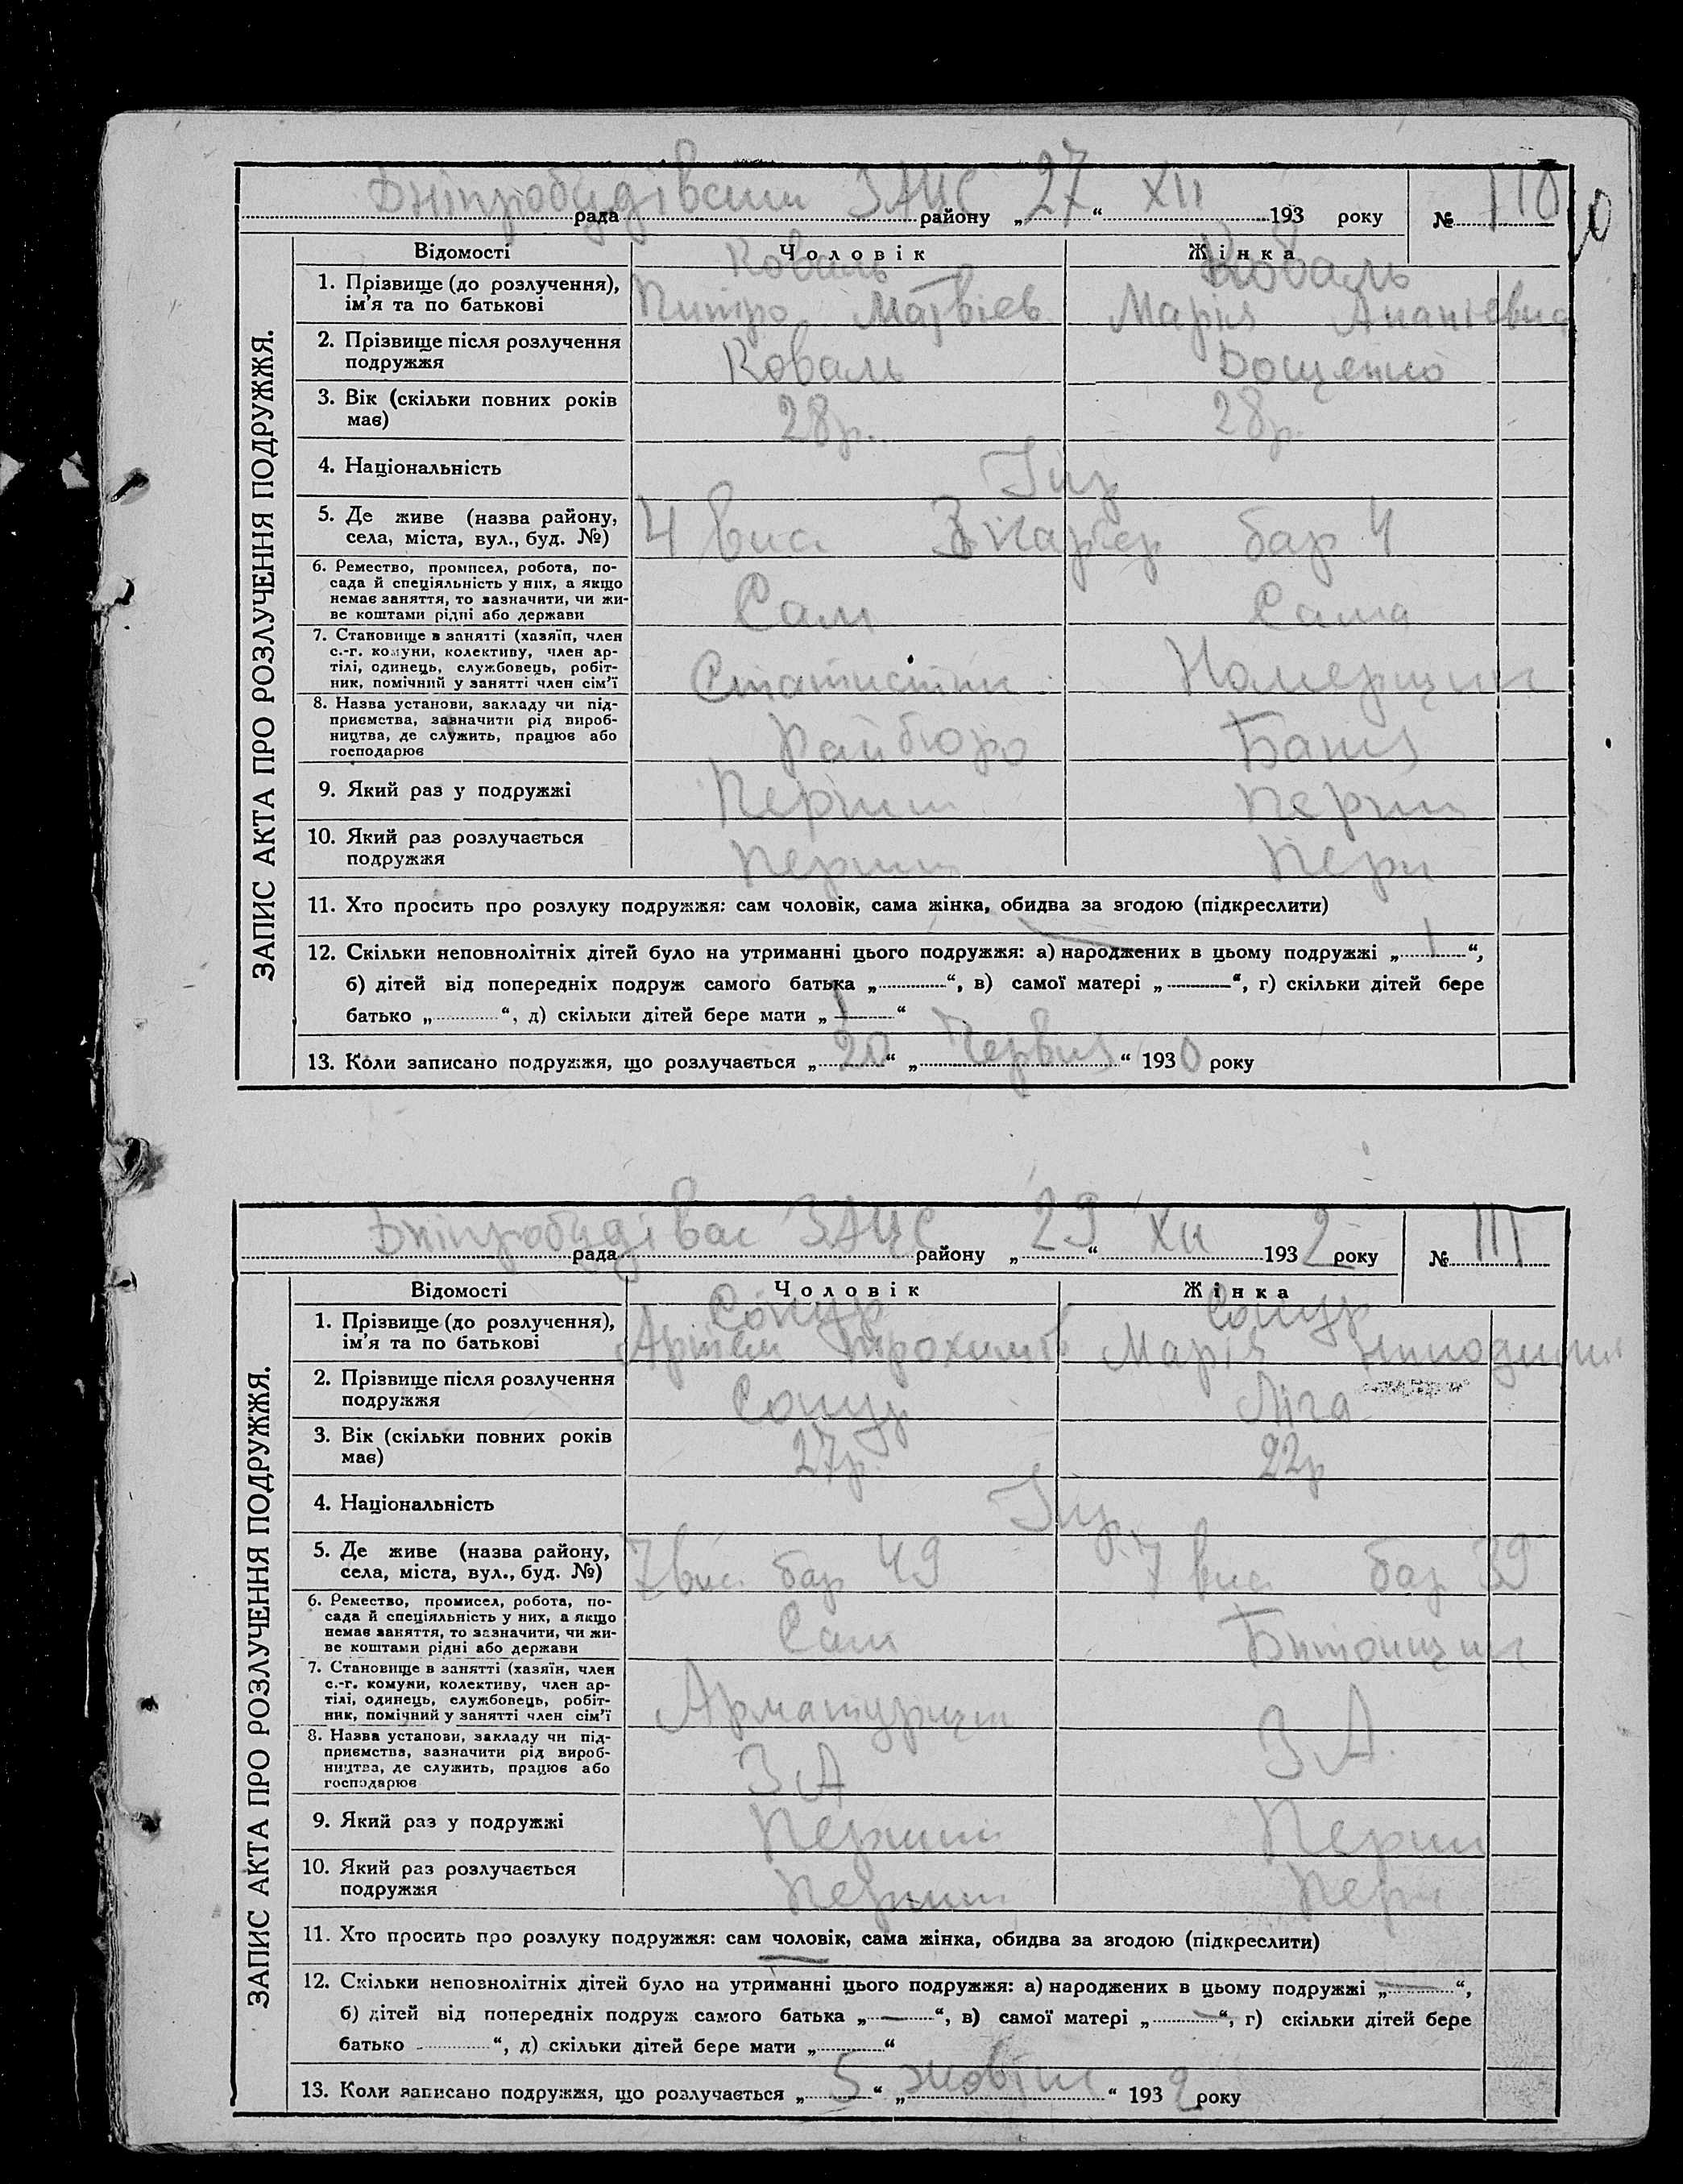 Дніпробудівський ЗАЦС 27 XII
рада району „ “ 193 року № 110
ЗАПИС АКТА ПРО РОЗЛУЧЕННЯ ПОДРУЖЖЯ.
Відомості Чоловік Жінка
Коваль Коваль
1. Прізвище (до розлучення), ім'я та по батькові Матвієв Марія Ананіевна
2. Прізвище після розлучення
подружжя Коваль
3. Вік (скільки повних років
має) 28р. 28р.
4. Національність
5. Де живе (назва району,
села, міста, вул., буд. №) 4 бар 4
6. Ремество, промисел, робота, по-
сада й спеціяльність у них, а якщо
немає заняття, то зазначити, чи жи-
ве коштами рідні або держави Сам Сама
7. Становище в занятті (хазяїн, член
с.-г. комуни, колективу, член ар-
тілі, одинець, службовець, робіт-
ник, помічний у занятті член сім'ї Статистик
8. Назва установи, закладу чи під-
приємства, зазначити рід вироб-
ництва, де служить, працює або
господарює Райбюро Баня
9. Який раз у подружжі Перший Перш
10. Який раз розлучається
подружжя Перший Перш
11. Хто просить про розлуку подружжя: сам чоловік, сама жінка, обидва за згодою (підкреслити)
12. Скільки неповнолітніх дітей було на утриманні цього подружжя: а) народжених в цьому подружжі „ 1 “,
б) дітей від попередніх подруж самого батька „ “, в) самої матері „ — “, г) скільки дітей бере
батько „ “, д) скільки дітей бере мати „ 1 “
13. Коли записано подружжя, що розлучається „ 20 “ „ Червня “ 1930 року
Дніпробудівс ЗАЦС 29 XII
рада району „ “ 1932 року № 111
ЗАПИС АКТА ПРО РОЗЛУЧЕННЯ ПОДРУЖЖЯ.
Відомості Чоловік Жінка
Сокур Сокур
1. Прізвище (до розлучення),
ім'я та по батькові Артем Трохимів Марія
2. Прізвище після розлучення
подружжя Сокур Ліга
3. Вік (скільки повних років
має) 27р. 22р
4. Національність
5. Де живе (назва району,
села, міста, вул., буд. №) 7 вис. бар 49 7 вис бар 39
6. Ремество, промисел, робота, по-
сада й спеціяльність у них, а якщо
немає заняття, то зазначити, чи жи-
ве коштами рідні або держави Сам
7. Становище в занятті (хазяїн, член
с.-г. комуни, колективу, член ар-
тілі, одинець, службовець, робіт-
ник, помічний у занятті член сім'ї Арматурщик
8. Назва установи, закладу чи під-
приємства, зазначити рід вироб-
ництва, де служить, працює або
господарює ЗА ЗА
9. Який раз у подружжі Перший Перш
10. Який раз розлучається
подружжя Перший Перш
11. Хто просить про розлуку подружжя: сам чоловік, сама жінка, обидва за згодою (підкреслити)
12. Скільки неповнолітніх дітей було на утриманні цього подружжя: а) народжених в цьому подружжі „ — “,
б) дітей від попередніх подруж самого батька „ — “, в) самої матері „ — “, г) скільки дітей бере
батько „ “, д) скільки дітей бере мати „ “
13. Коли записано подружжя, що розлучається „ 5 “ „ жовтня “ 1932 року